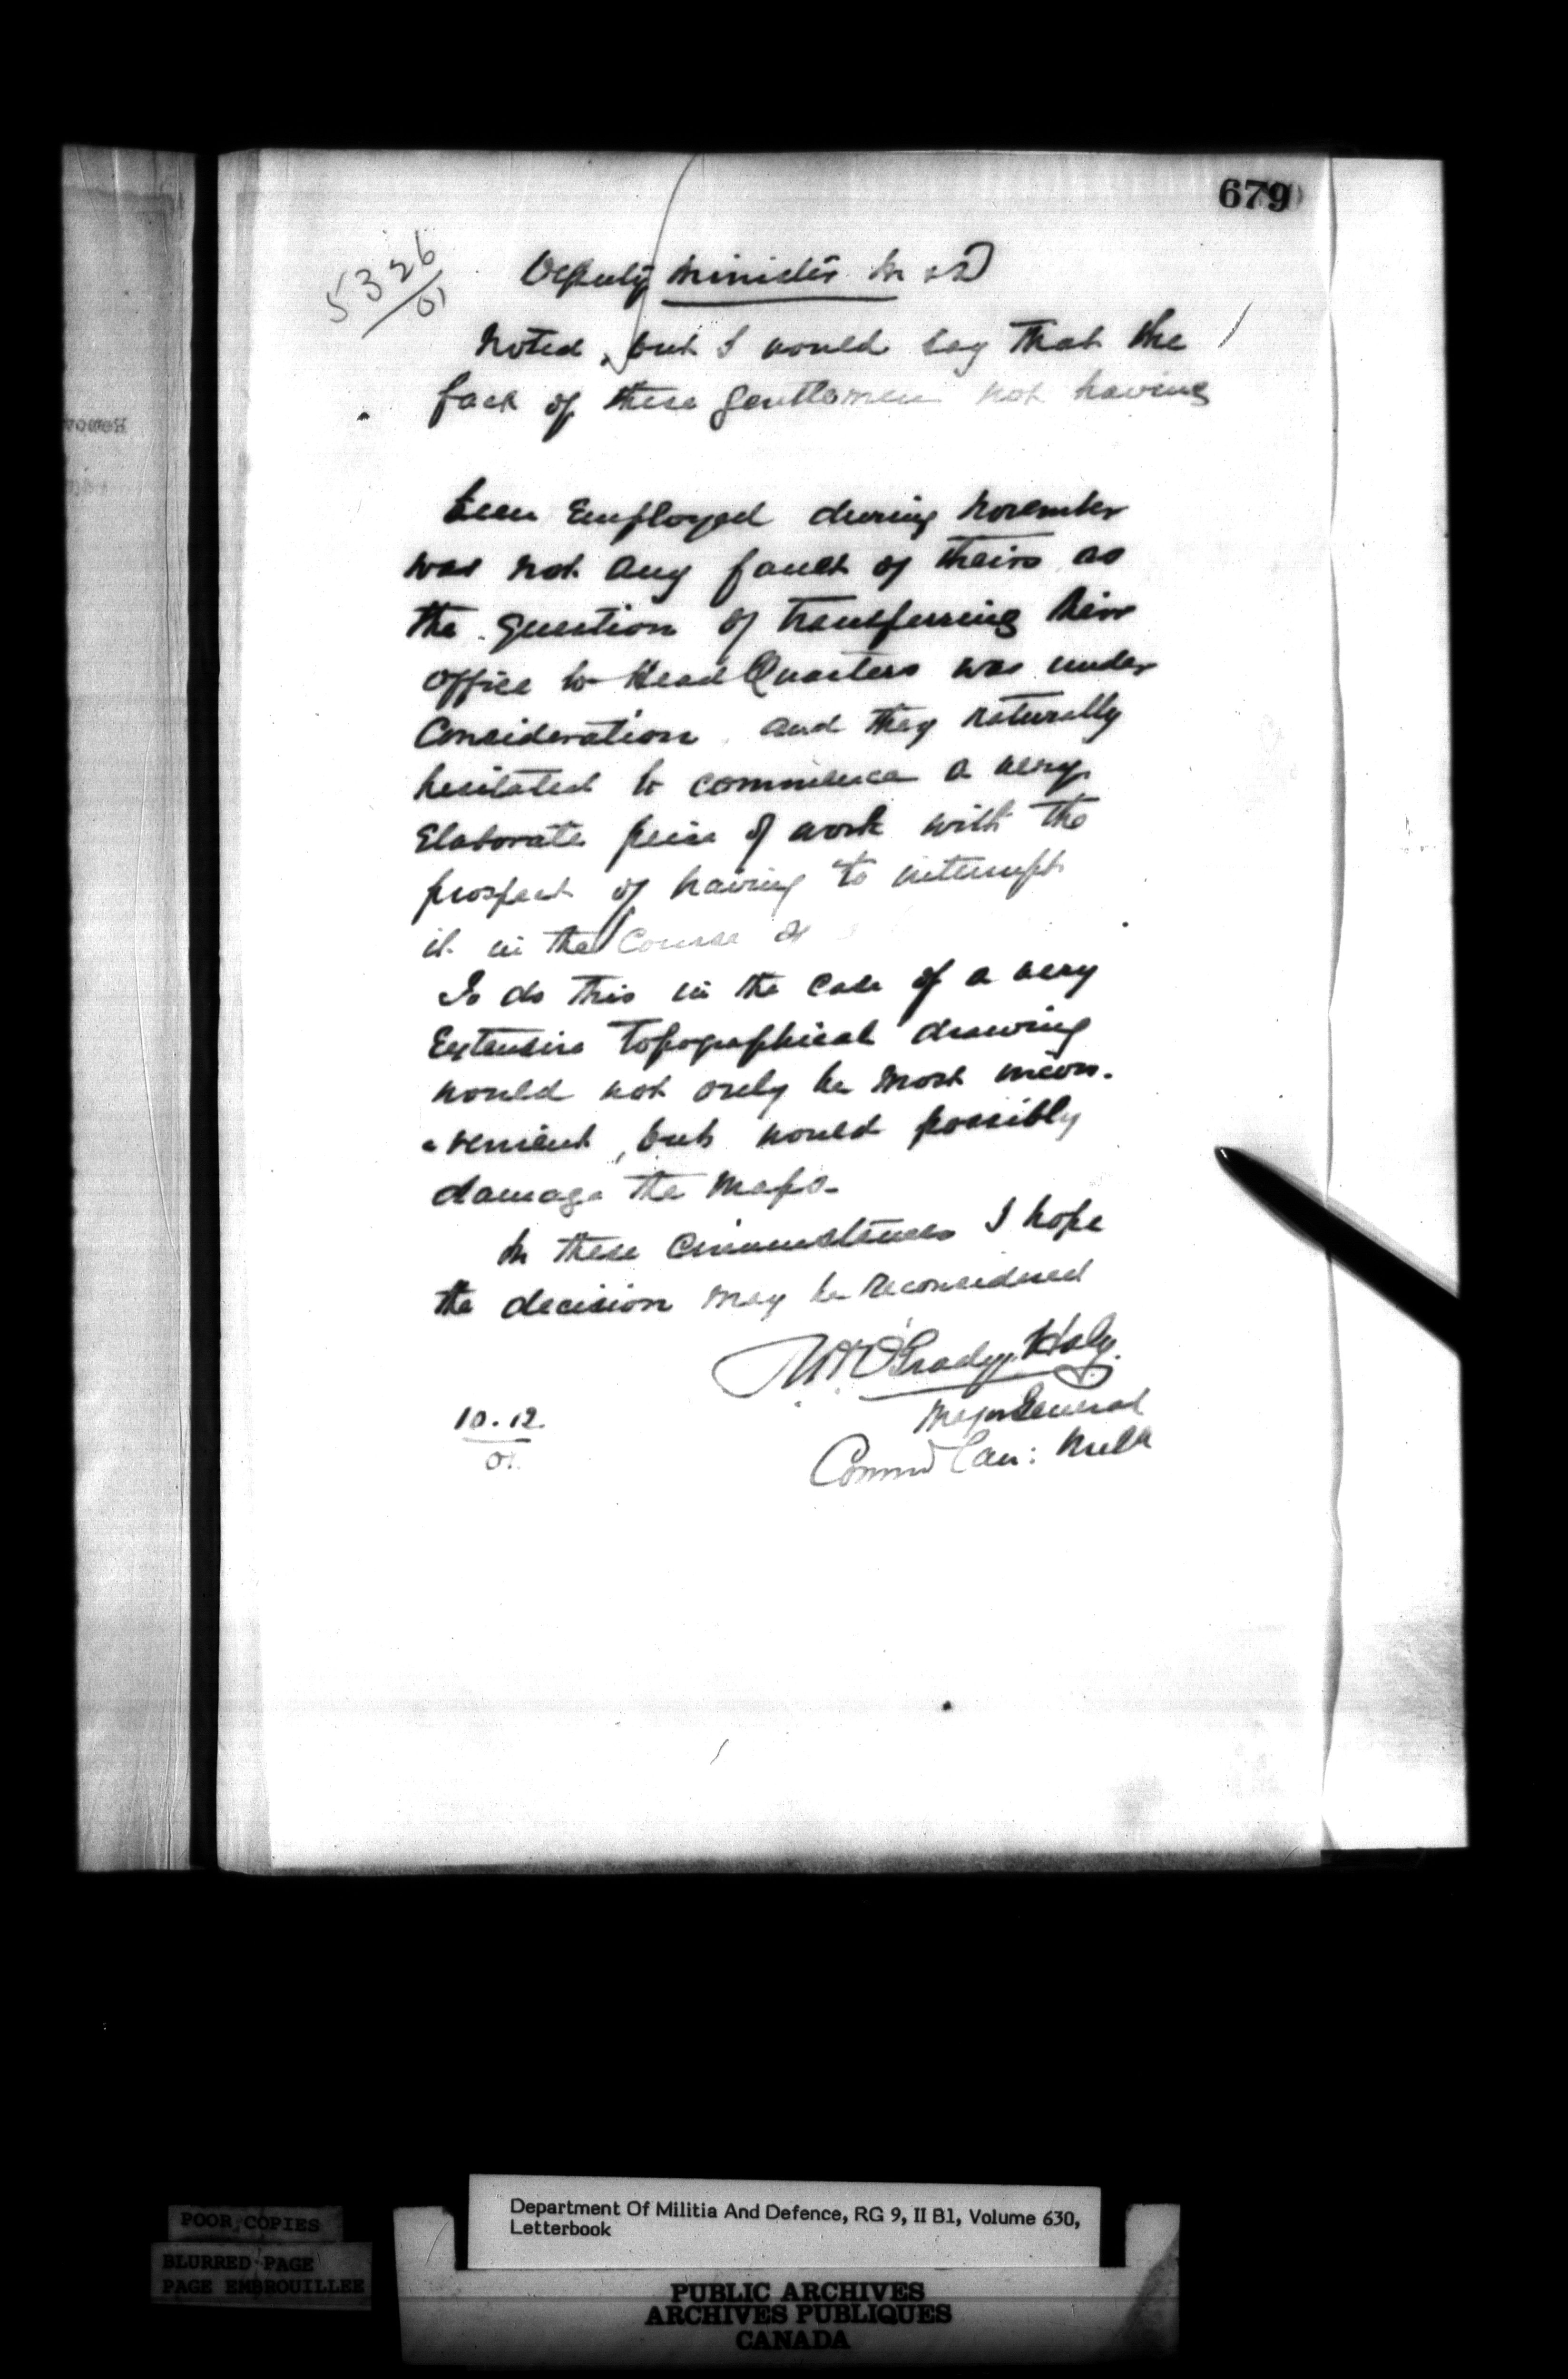 679
5326
01
Deputy Minister M & D
Noted, but I would say that the
fact of these gentlemen not having
been Employed during November
was not any fault of theirs as
the question of transferring their
office to Head Quarters was under
Consideration and they naturally
hesitated to commence a very
Elaborate piece of work with the
prospect of having to interrupt
it in the course of
To do this in the case of a very
Extensive Topographical drawing
would not only be most incon-
-venient, but would possibly
damage the maps.
In these circumstances I hope
the decision may be reconsidered
O'Grady Haly.
Major General
Comm'd Can: Mil
10.12.
01.
Department Of Militia And Defence, RG 9, II B1, Volume 630,
Letterbook
POOR COPIES
BLURRED PAGE
PAGE EMBROUILLEE
PUBLIC ARCHIVES
ARCHIVES PUBLIQUES
CANADA